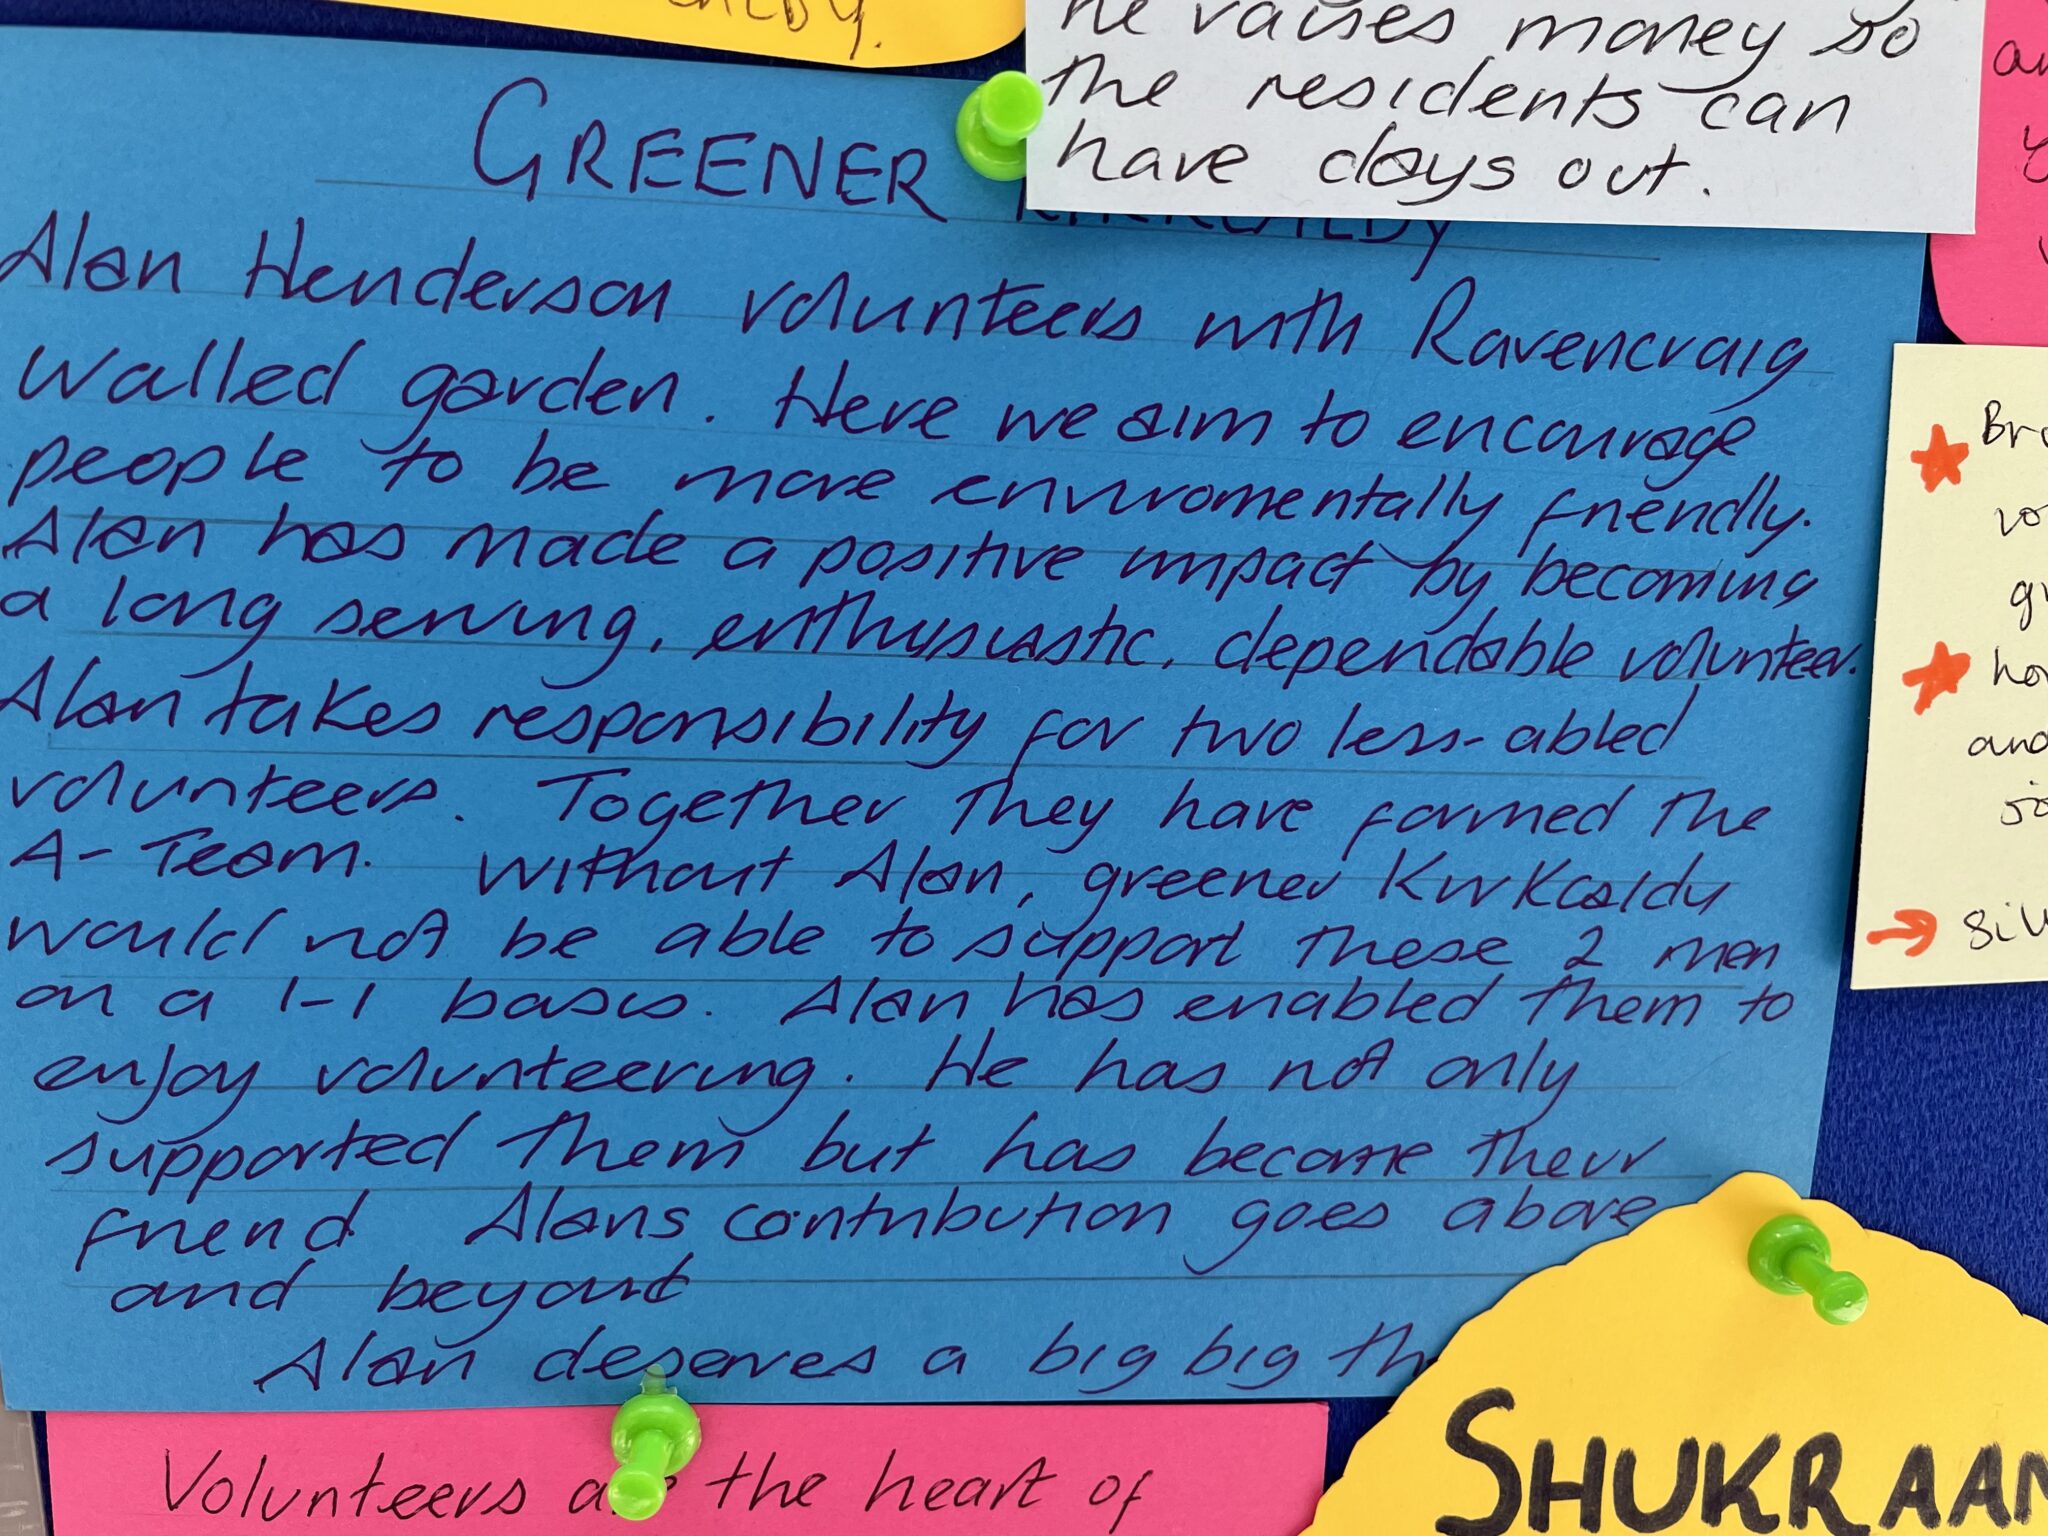 he raises money so
the residents can
have days out.
GREENER
Alan Henderson volunteers with Ravencraig
Walled garden. Here we aim to encourage
people to be more enviromentally friendly.
Alan has made a positive impact by becoming
a long serving, enthusiastic, dependable volunteer.
Alan takes responsibility for two less-abled
volunteers. Together they have formed the
A-Team. Without Alan, greener Kirkcaldy
would not be able to support these 2 men
on a 1-1 basis. Alan has enabled them to
enjoy volunteering. He has not only
supported them but has become their
friend. Alans contribution goes above
and beyond
Alan deserves a big big th
Volunteers are the heart of
SHUKRAAN